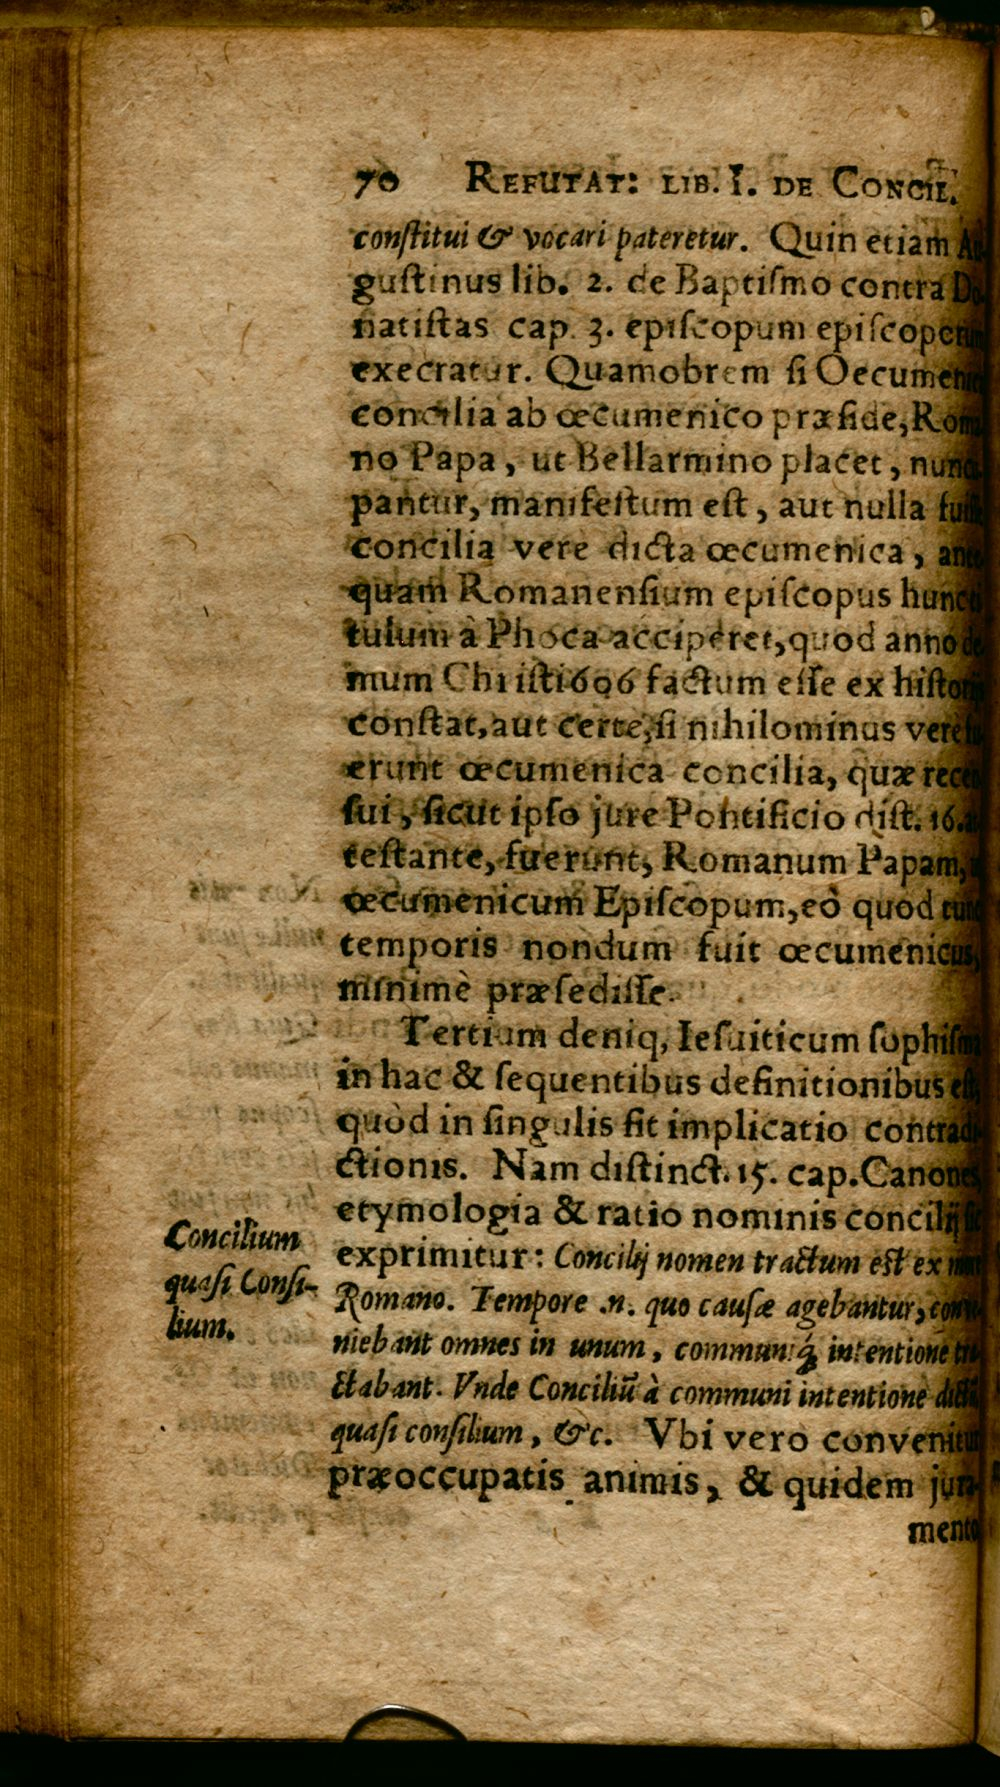 70 REFUTAT: LIB. I. DE CONCIL.
conſtitui & vocari pateretur. Quin etiam Au-
guſtinus lib. 2. de Baptiſmo contra Do-
natiſtas cap. 3. epiſcopum epiſcoporum
execratur. Quamobrem ſi Oecumenica
concilia ab œcumenico præſide, Roma-
no Papa, ut Bellarmino placet, nuncu-
pantur, manifeſtum eſt, aut nulla fuiſſe
concilia vere dicta œcumenica, ante-
quam Romanenſium epiſcopus hunc ti-
tulum à Phoca acciperet, quod anno de-
mum Chriſti 606 factum eſſe ex hiſtorijs
conſtat, aut certe, ſi nihilominus vere fu-
erunt œcumenica concilia, quæ recen-
ſui, ſicut ipſo jure Pontificio diſt. 16.
teſtante, fuerunt, Romanum Papam,
œcumenicum Epiſcopum, eò quod tunc
temporis nondum fuit œcumenicus,
minimè præſediſſe.
Tertium deniq, Ieſuiticum ſophiſma
in hac & ſequentibus definitionibus eſt,
quòd in ſingulis ſit implicatio contradi-
ctionis. Nam diſtinct. 15. cap. Canones,
etymologia & ratio nominis concilij ſic
exprimitur: Concilij nomen tractum eſt ex more
Romano. Tempore .n. quo cauſæ agebantur, conve-
niebant omnes in unum, communiq́; intentione tra-
ctabant. Vnde Conciliũ à communi intentione dictũ
quaſi conſilium, &c. Vbi vero convenitur
præoccupatis animis, & quidem jura-
mento
Concilium
quaſi Conſi-
lium.